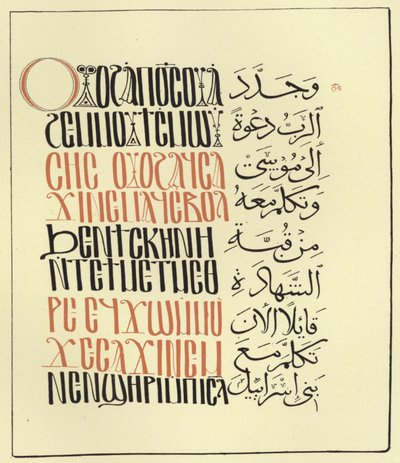 ⲟⲩⲟϩ ⲁⲡⲟⲥ ⲟⲩⲁ
ϩⲉⲙ ⲙⲟⲩϯ ⲉⲙⲱⲩ
ⲥⲏⲥ ⲟⲩⲟϩ ⲁϥⲥⲁ
ϫⲓ ⲛⲉⲙⲁϥ ⲉⲃⲟⲗ
ϧⲉⲛ ϯⲥⲕⲏⲛⲏ
ⲛⲧⲉ ϯⲙⲉⲧⲙⲉⲑ
ⲣⲉ ⲉϥϫⲱ ⲙⲙⲟⲥ
ϫⲉ ⲥⲁϫⲓ ⲛⲉⲙ
ⲛⲉⲛϣⲏⲣⲓ ⲙⲡⲓⲥⲗ
وَجَدَّدَ
الرب دعوة
إلى موسى
وتكلم معه
من قبة
الشهادة
قايلا الآن
تكلم مع
بني اسراييل